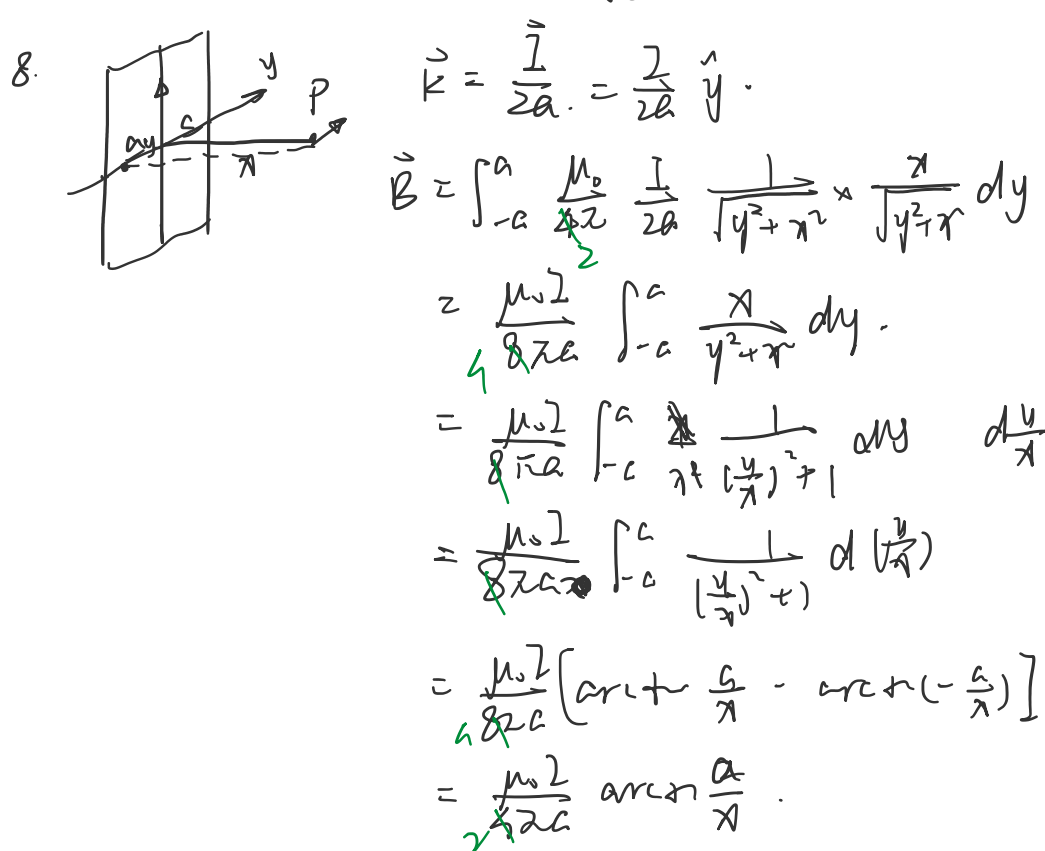 8.
y
P
a
dy
x
\vec{K} = \frac{\vec{I}}{2a.} = \frac{I}{2a} \hat{y}.
\vec{B} = \int_{-a}^{a} \frac{\mu_0}{4\pi} \frac{I}{2a} \frac{1}{\sqrt{y^2+x^2}} \times \frac{x}{\sqrt{y^2+x^2}} dy
2
= \frac{\mu_0 I}{8\pi a} \int_{-a}^{a} \frac{x}{y^2+x^2} dy.
4
= \frac{\mu_0 I}{8\pi a} \int_{-a}^{a} \frac{1}{(\frac{y}{x})^2+1} d\frac{y}{x}
= \frac{\mu_0 I}{8\pi a} \int_{-a}^{a} \frac{1}{(\frac{y}{x})^2+1} d(\frac{y}{x})
= \frac{\mu_0 I}{8\pi a} [arctn \frac{a}{x} - arctn(-\frac{a}{x})]
4
= \frac{\mu_0 I}{4\pi a} arctn \frac{a}{x}.
2